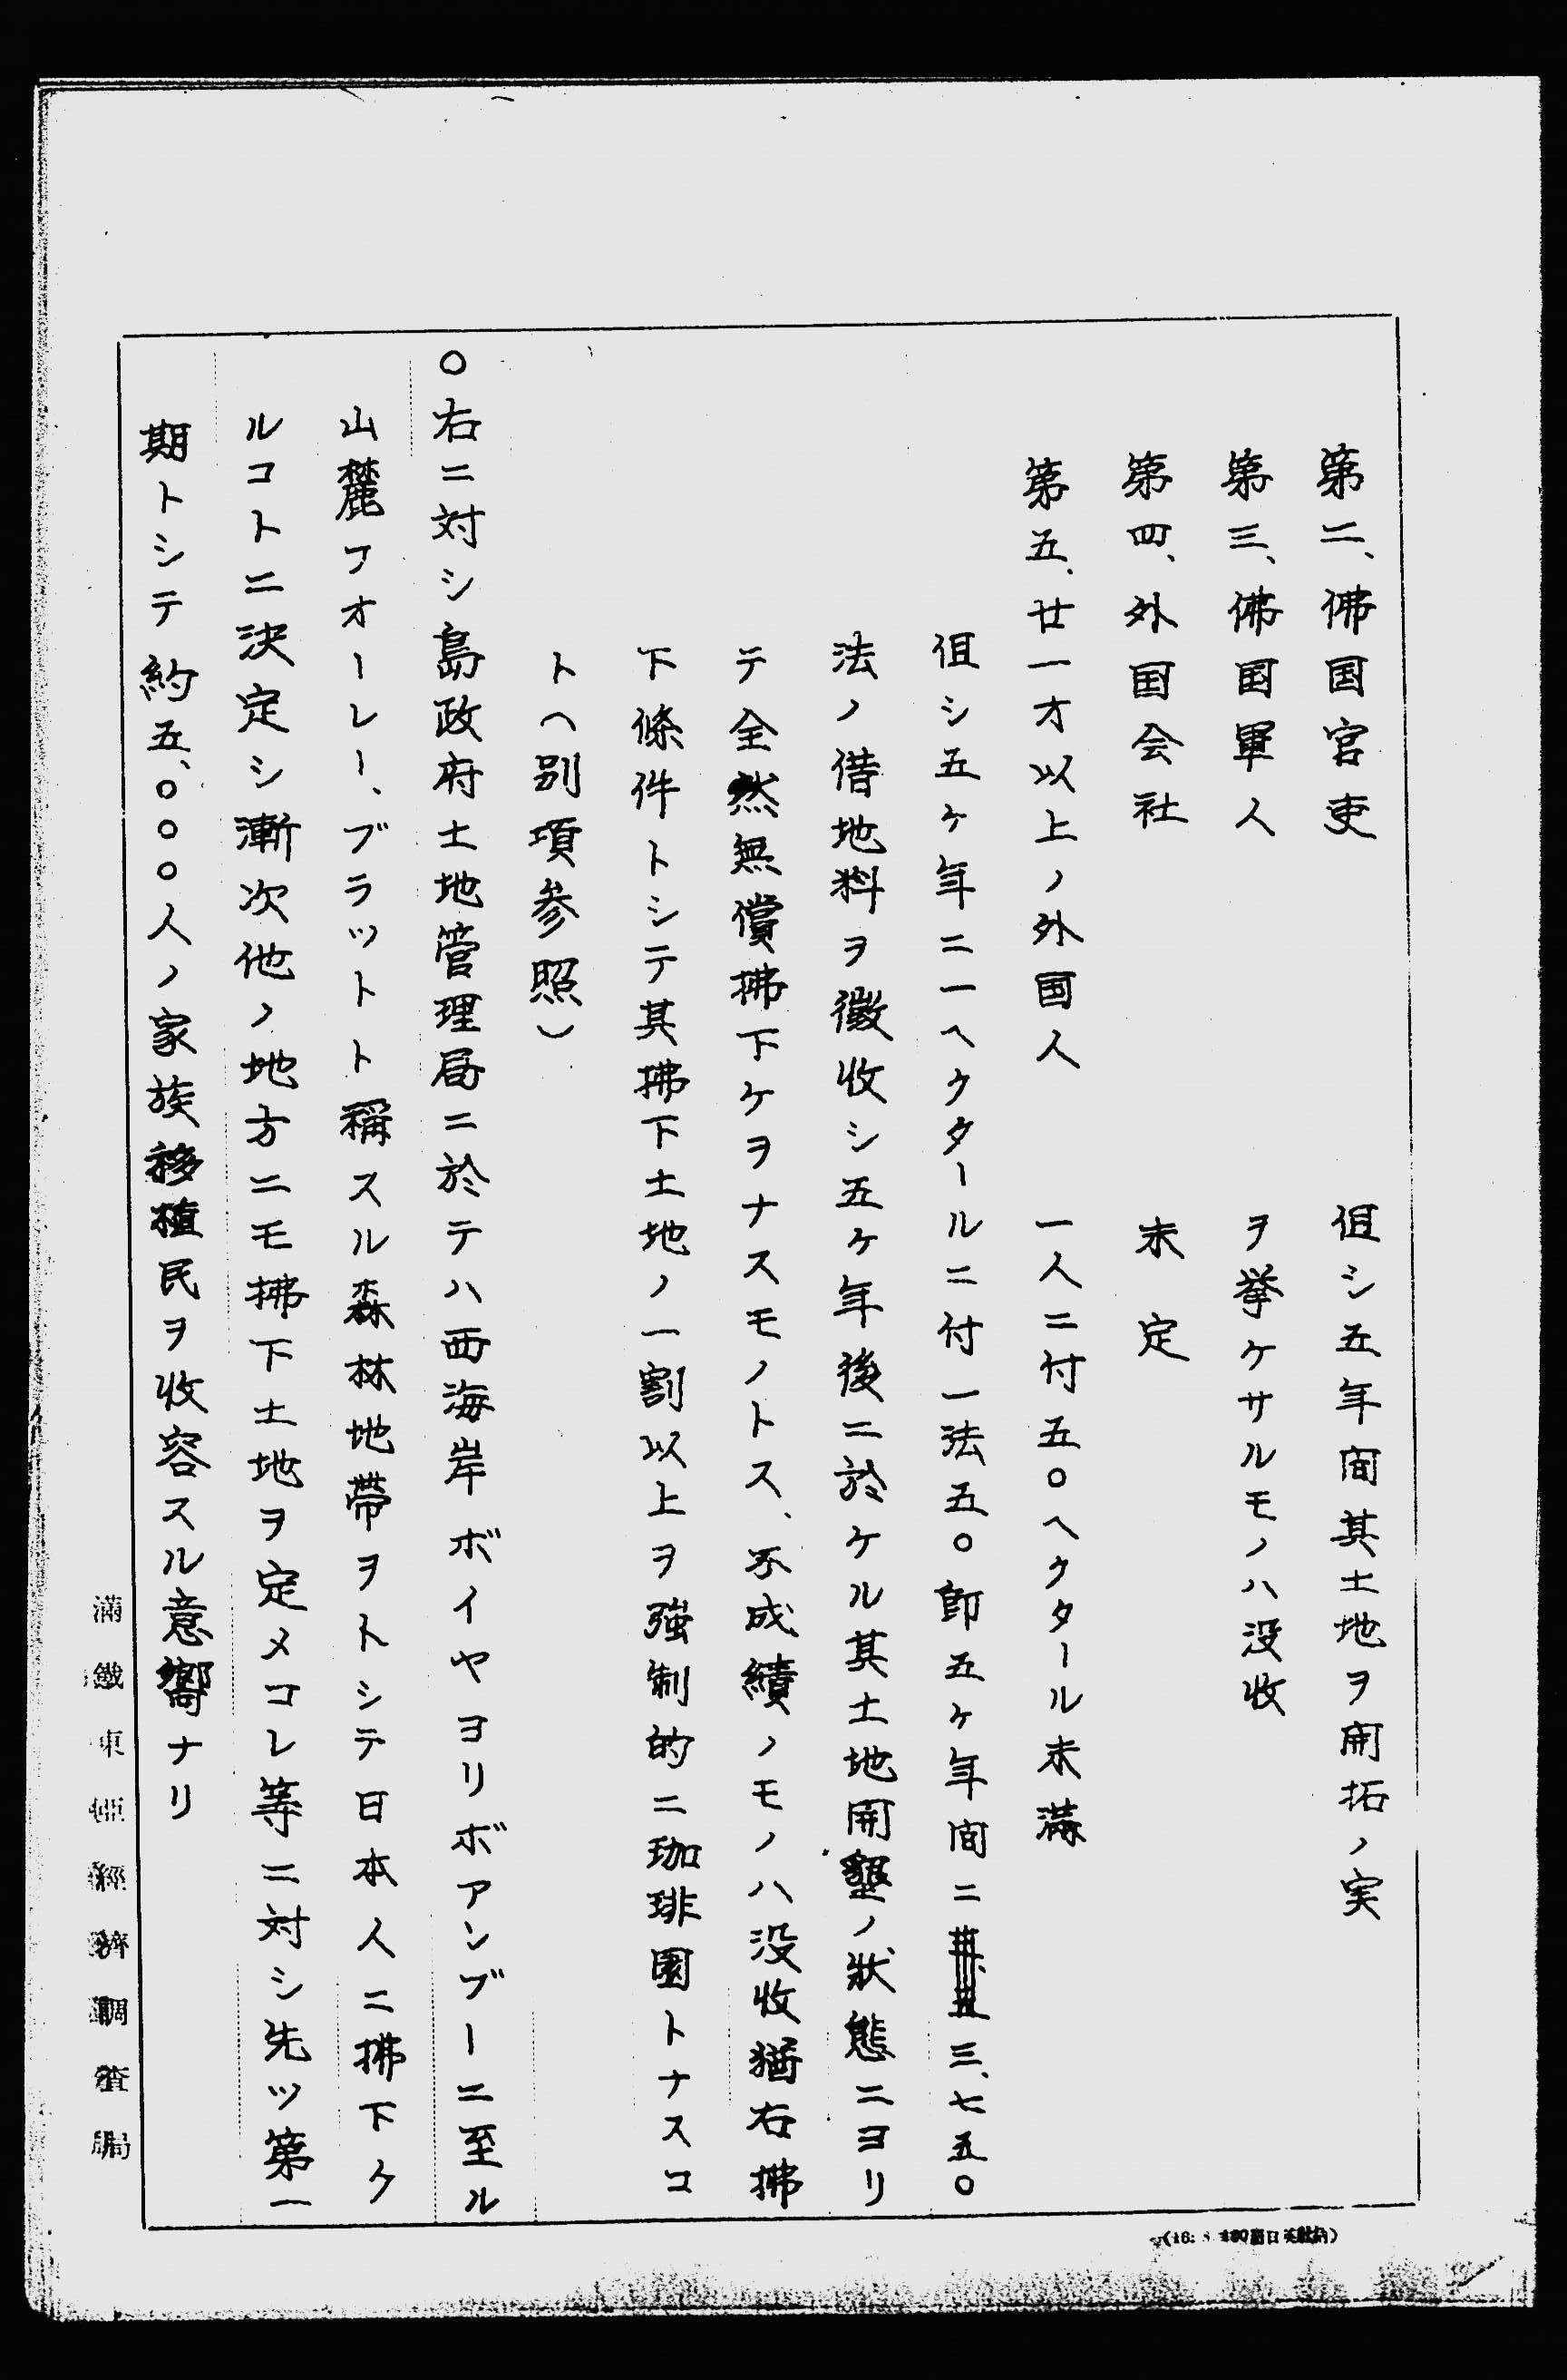 第二、佛国官吏　　　但シ五年间其土地ヲ開拓ノ実
第三、佛国軍人　　　ヲ挙ケサルモノハ没收
第四、外国会社　　　未定
第五、廿一才以上ノ外国人　　　一人ニ付五〇ヘクタール未満
但シ五ヶ年ニ一ヘクタールニ付一法五〇即五ヶ年间ニ三、七五〇
法ノ借地料ヲ徴收シ五ヶ年後ニ於ケル其土地開墾ノ狀態ニヨリ
テ全然無償拂下ケヲナスモノトス、不成績ノモノハ没收猶右拂
下條件トシテ其拂下土地ノ一割以上ヲ強制的ニ珈琲園トナスコ
ト（別項参照）
〇右ニ対シ島政府土地管理局ニ於テハ西海岸ボイヤヨリボアンブーニ至ル
山麓フオーレー、ブラットト稱スル森林地帶ヲトシテ日本人ニ拂下ケ
ルコトニ決定シ漸次他ノ地方ニモ拂下土地ヲ定メコレ等ニ対シ先ツ第一
期トシテ約五、〇〇〇人ノ家族移植民ヲ收容スル意嚮ナリ
滿鐵東亞經濟調査局